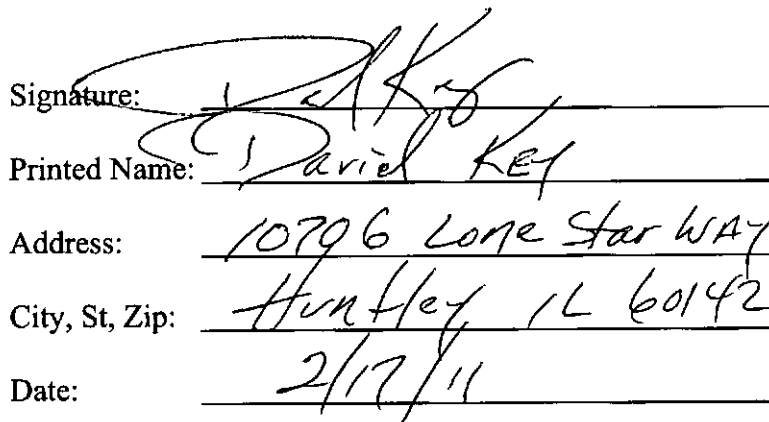 Signature: David Key
Printed Name: David Key
Address: 10796 Lone Star WAY
City, St, Zip: Huntley IL 60142
Date: 2/17/11